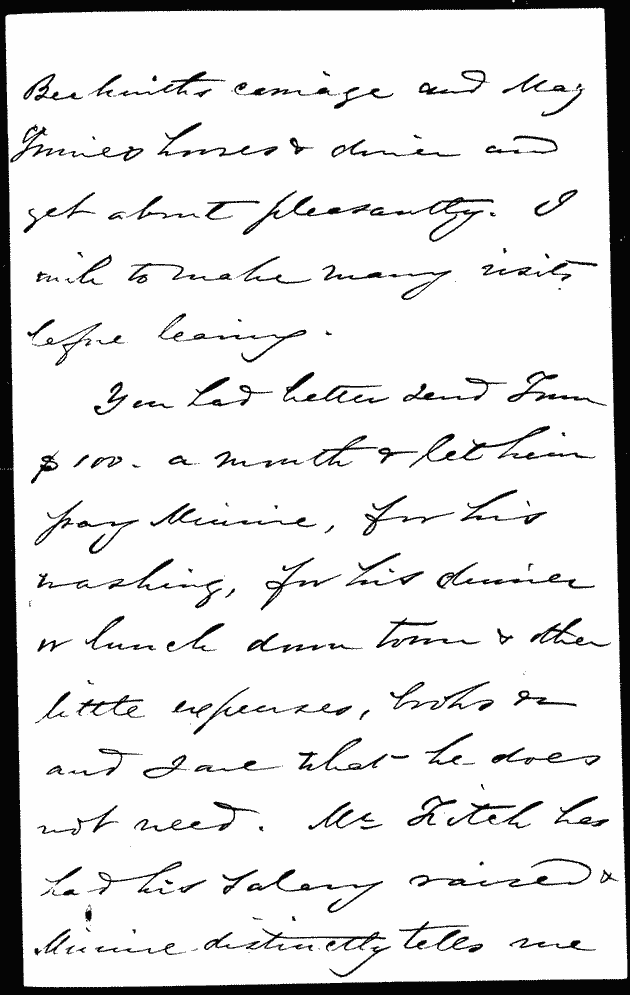 Beckwiths carriage and May
horses & driver and
get about pleasantly. I
wish to make many visits
before leaving.
You had better send Tom
$100. a month & let him
pay Minnie, for his
washing, for his dinner
or lunch down town & other
little expenses, books &c
and save what he does
not need. Mr Fitch has
had his salary raised &
Minnie distinctly tells me